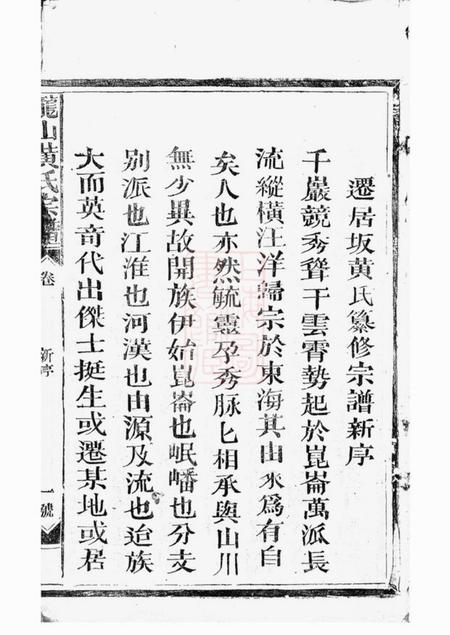 遷居坂黃氏纂修宗譜新序
千巖競秀聳干雲霄勢起於崑崙萬派長
流縱橫汪洋歸宗於東海其由來爲有自
矣人也亦然毓靈孕秀脉匕相承與山川
無少異故開族伊始崑崙也岷嶓也分支
別派也江淮也河漢也由源及流也迨族
大而英奇代出傑士挺生或遷某地或居
龍山黃氏宗譜
卷
新序
一號